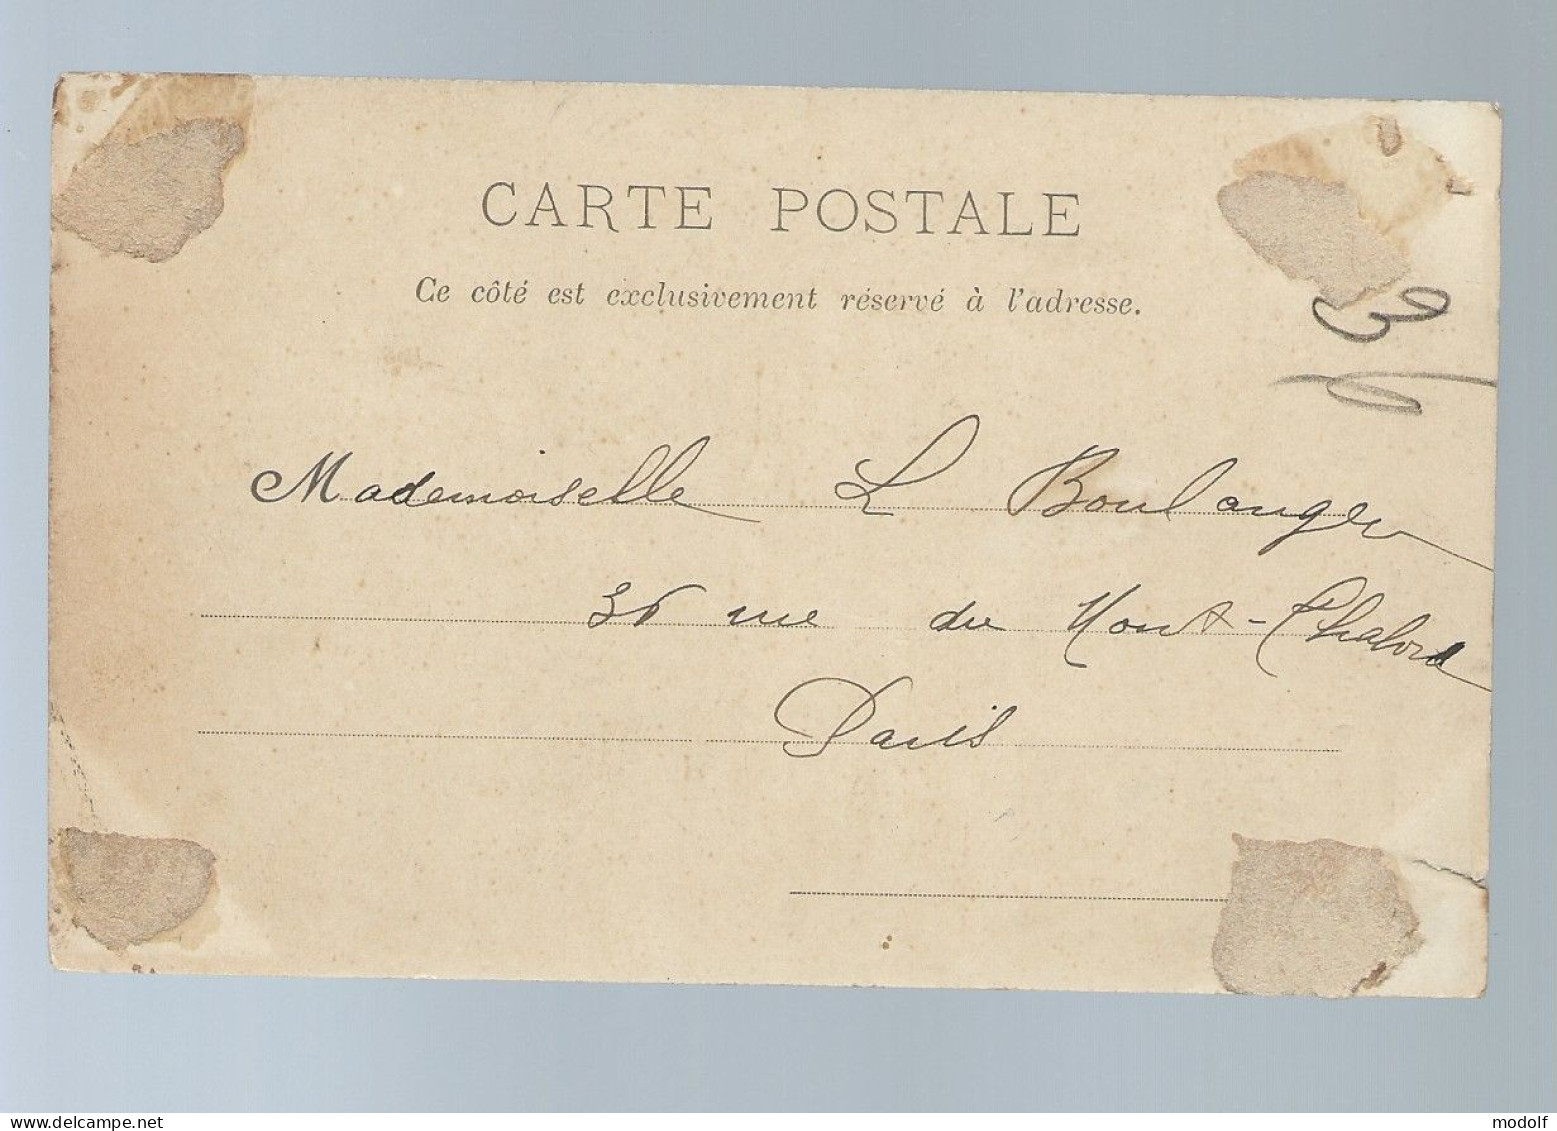 CARTE POSTALE
Ce côté est exclusivement réservé à l'adresse.
Mademoiselle L Boulanger
36 rue du Mont-Thabord
Paris
delcampe.net
modolf